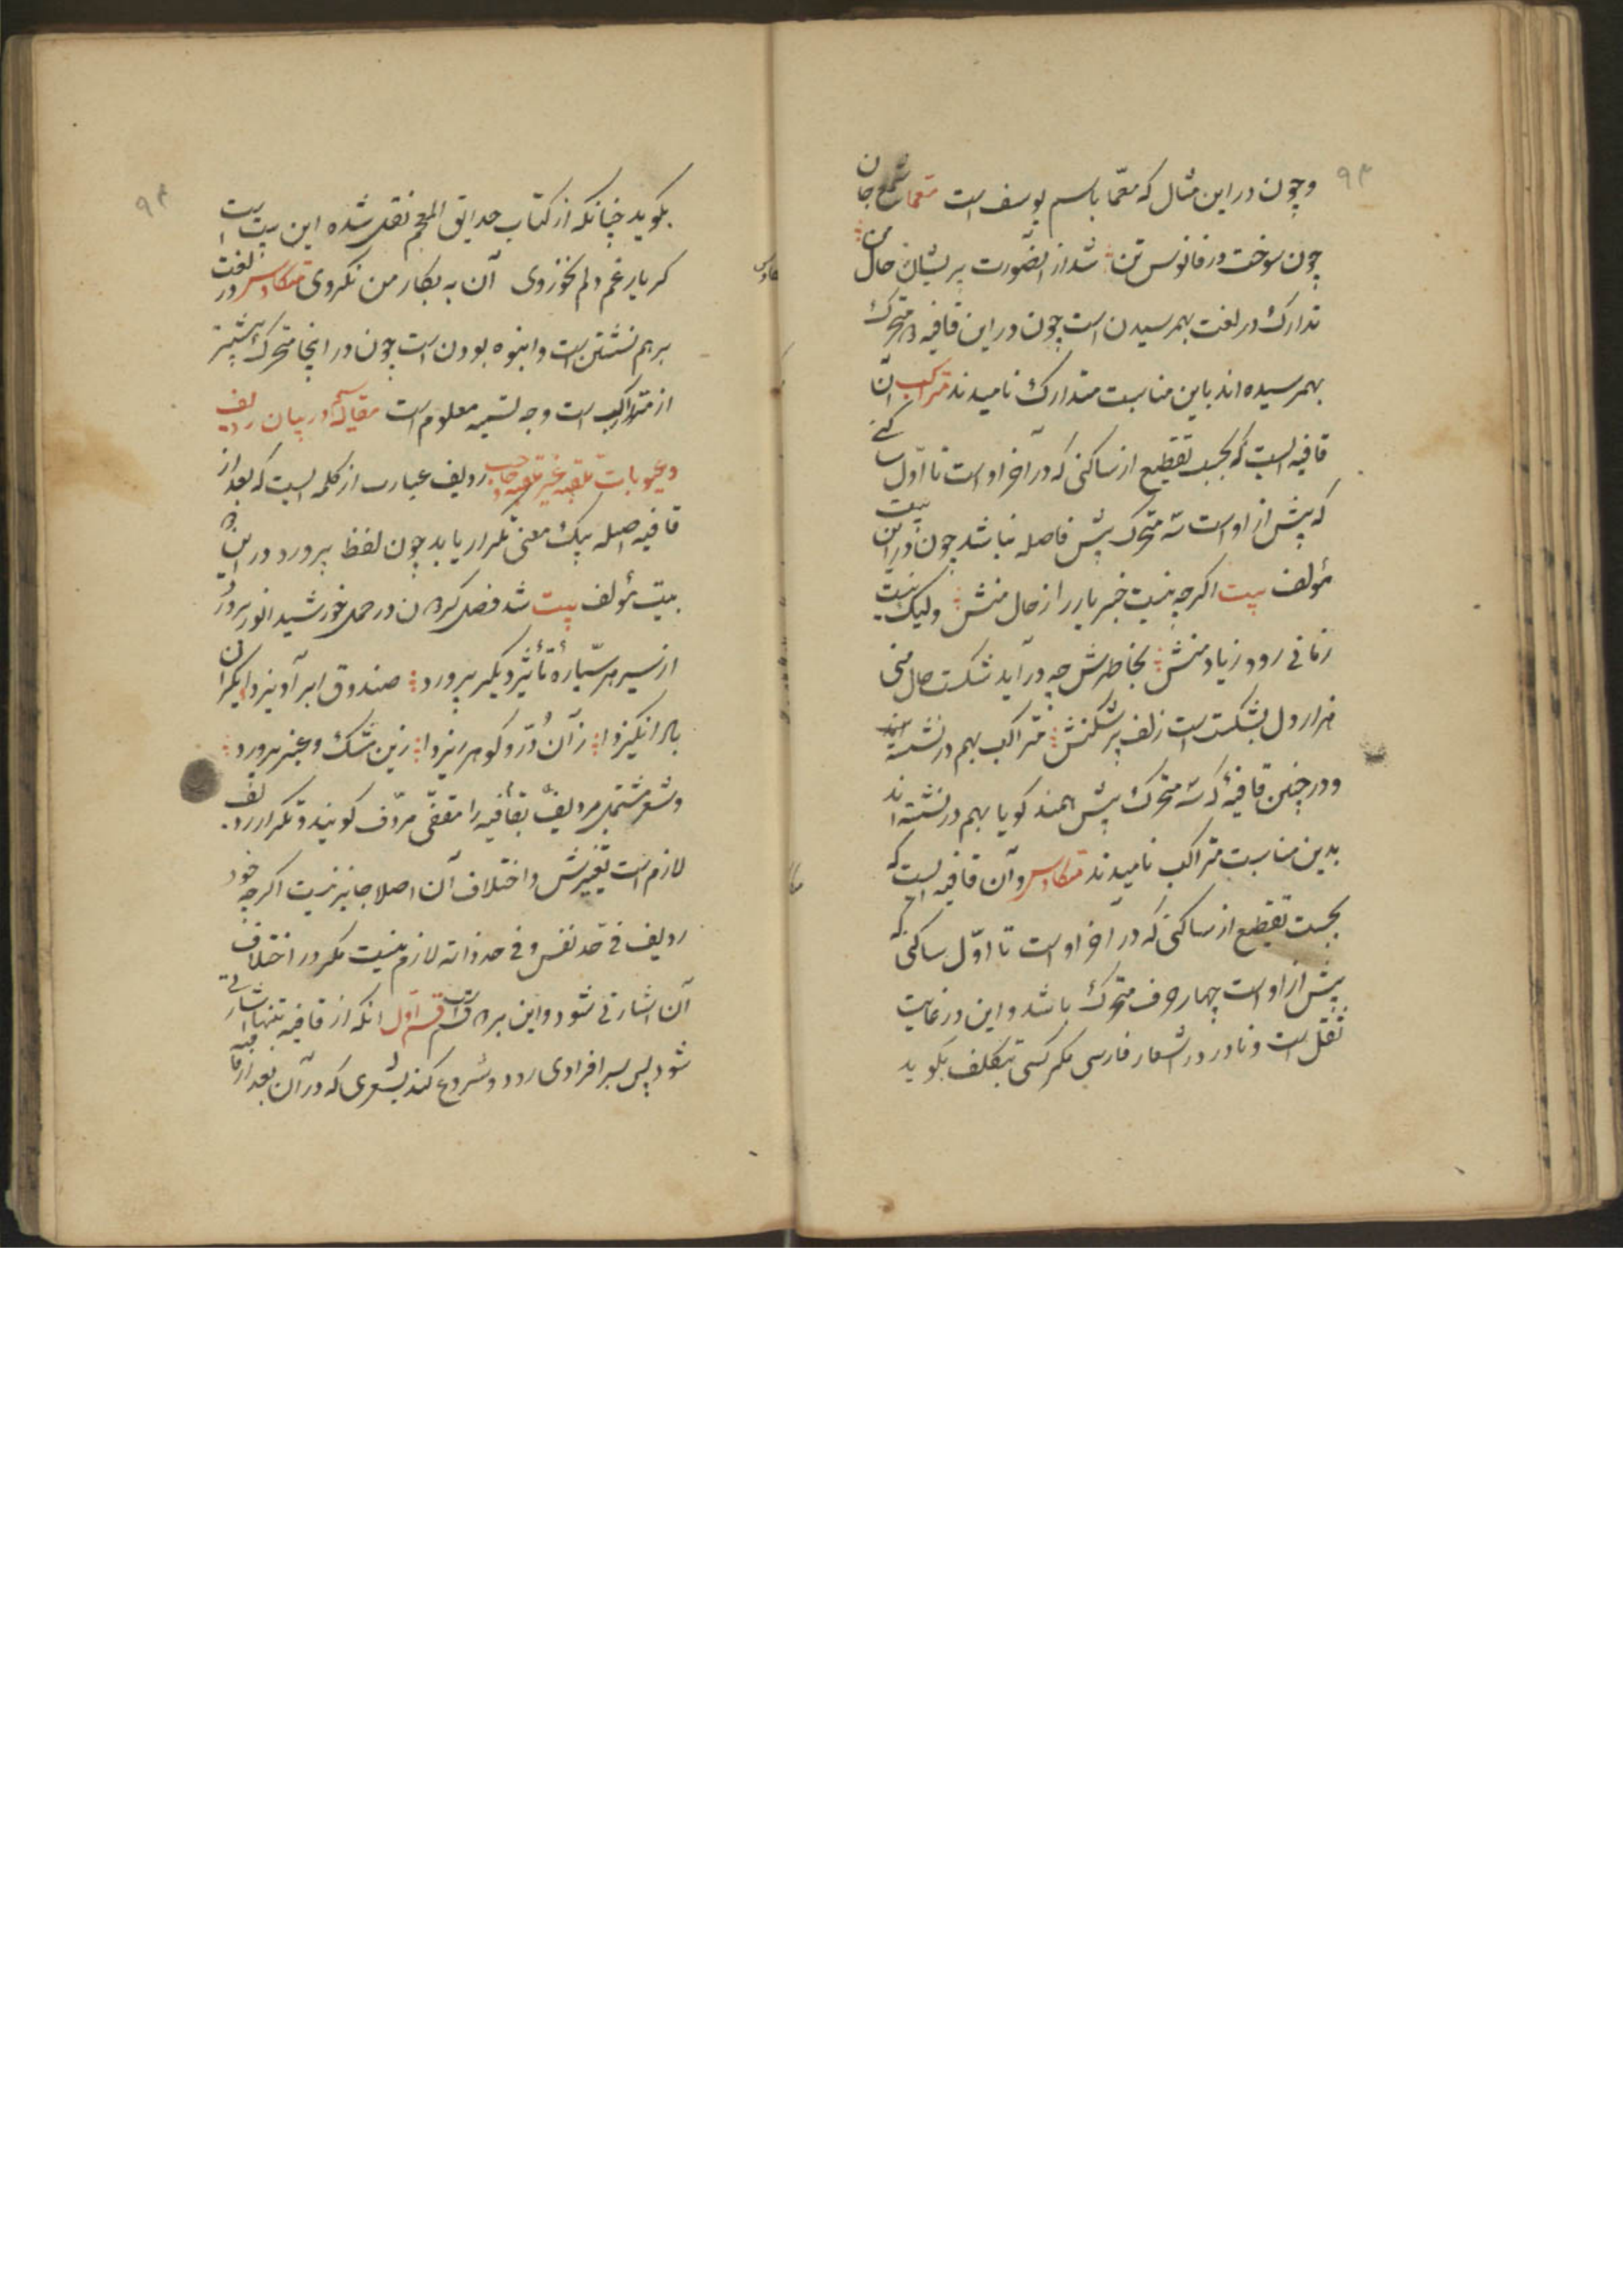 ۹۳
وچون در این مثال که معما باسم یوسف است معما شمع جان
چون سوخت در فانوس تن شد از الضورت پریشان حال من
تدارک در لغت بهم رسیدن است چون در این قافیه دو متحرک
بهم رسیده اند باین مناسبت متدارک نامیدند متراکب آن
قافیه ایست که بحسب تقطیع از ساکنی که در آخر اوست تا اول ساکنی
که پیش از اوست سه متحرک پیش فاصله نباشد چون در این بیت
مؤلف بیت اگرچه نیست خبر یار را ز حال منش ولیک نیست
زمانی رود ز یاد منش بخاطرش چه در آید شکست حال منی
هزار دل بشکست است زلف پرشکنش متراکب بهم در نشسته
ودر چنین قافیهٔ که سه متحرک پیش همند کویا بهم در نشسته اند
بدین مناسبت متراکب نامیدند متکاوس وآن قافیه ایست که
بحسب تقطیع از ساکنی که در آخر اوست تا اوّل ساکنی که
پیش از اوست چهار حرف متحرک باشد و این در غایت
ثقل است و نادر در اشعار فارسی مکر کسی بتکلف بکوید
۹۴
بکوید چنانکه از کتاب حدایق المعجم نقل شده این بیت است
کر یار غم دلم بخوردی آن به بکار من نکردی متکاوس در لغت
برهم نشستن است وانبوه بودن است چون در اینجا متحرک بیشتر
از متراکب است وجه تسمیه معلوم است مقاله در بیان ردیف
وعیوبات حاجب ردیف عبارت از کلمه ایست که بعد از
قافیه اصلیه بیک معنی تکرار یابد چون لفظ پرورد در این
بیت مؤلف بیت شد فصل کردن در حمل خورشید انور پرورد
از سیر هر سیّارهٔ تأثیر دیکر پرورد صندوق ابر آویزد
بال انکیزد زآن دُرّ و کوهر ریزد زین مشک وعنبر پرورد
وشعر مشتمل بردیف بقافیه را مقفّی مردّف کویند وتکرار ردیف
لازم است تغییرش واختلاف آن اصلا جایز نیست اکرچه خود
ردیف فی حد نفس وفی حد ذاته لازم نیست مکر در اختلاف
آن اشارتی شود واین بر دو قسم است قسم اول انکه از قافیه تنها اشارتی
شود پس بر افرادی رود وشروع کند بشعری که در آن بعد از قافیه